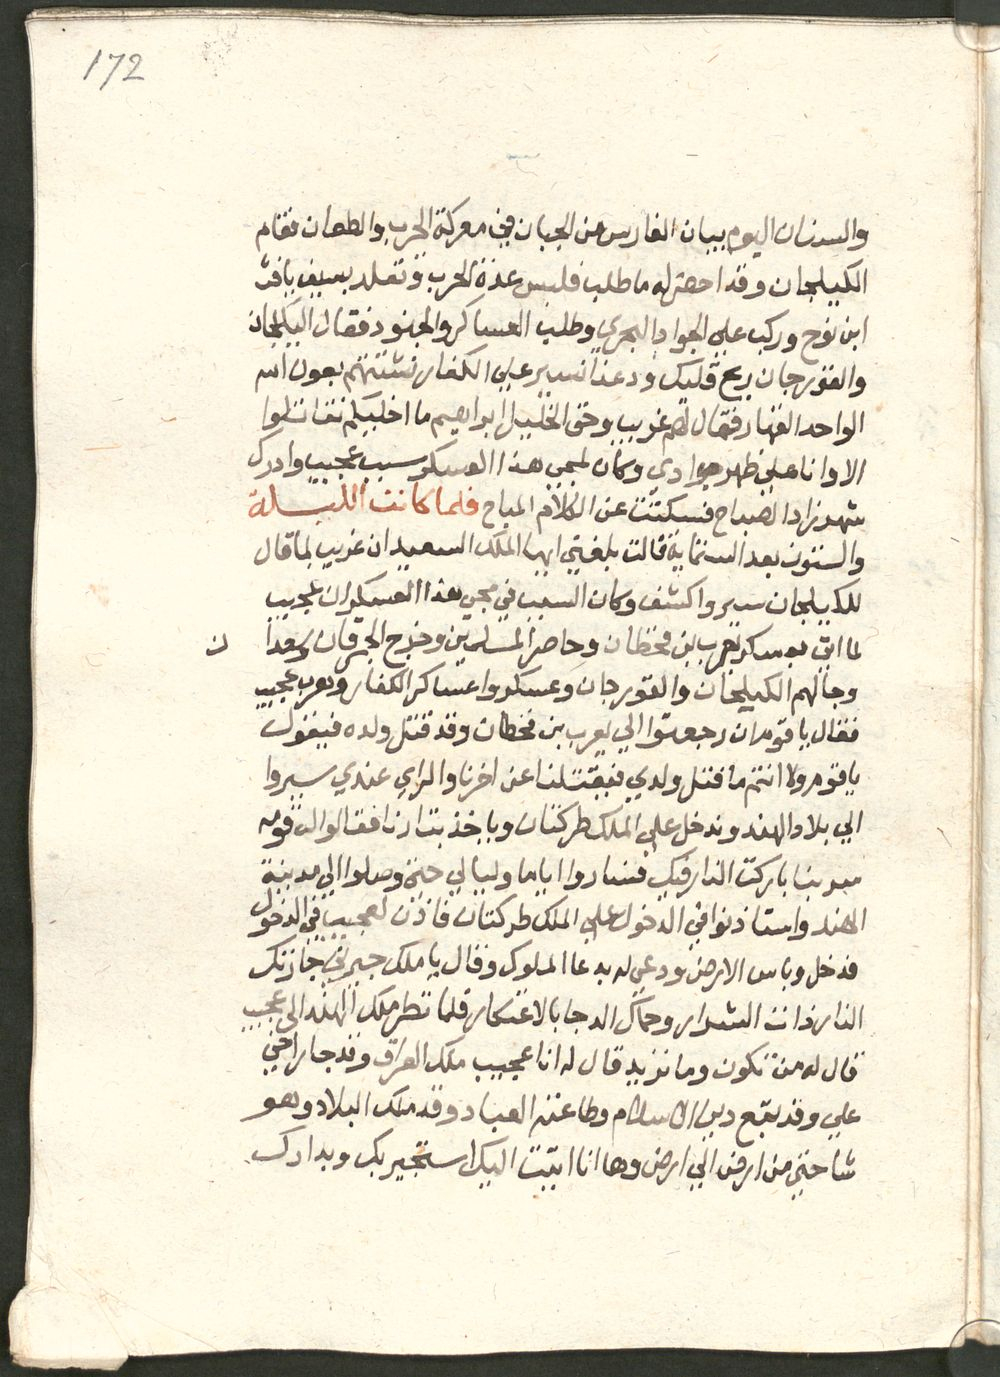 172
والسنان اليوم يبان الفارس من الجبان في معركة الحرب والطعان فقام
الكيلجان وقد احضر له ما طلب فلبس عدة الحرب وتقلد بسيف يافث
ابن نوح وركب علي الجواد البحري وطلب العساكر والجنود فقال الكيلجان
والقورجان ريح قلبك ودعنا نسير علي الكفار نشتتهم بعون الله
الواحد القهار فقال لهم غريب وحق الخليل ابراهيم ما اخليكم تقاتلوا
الا وانا علي ظهر جوادي وكان لمجي هذا العسكر سبب عجيب وادرك
شهرزاد الصباح فسكتت عن الكلام المباح فلما كانت الليلة
والستون بعد الستماية قالت بلغني ايها الملك السعيد ان غريب لما قال
للكيلجان سيروا اكشف وكان السبب في مجي هذا العسكر ان عجيب
لما اتي بعسكر يعرب بن قحطان وحاصر المسلمين وخرج الجمرقان وسعدا
ن
وجا لهم الكيلجان والقورجان وعسكروا عساكر الكفار وهرب عجيب
فقال يا قوم ان رجعتوا الي يعرب بن قحطان وقد قتل ولده فيقول
يا قوم لولا انتم ما قتل ولدي فيقتلنا عن اخرنا والراي عندي سيروا
الي بلاد الهند وندخل علي الملك طركنان وياخذ بتارنا فقالوا له قومه
سير بنا باركت النار فيك فساروا اياما وليالي حتي وصلوا الي مدينة
الهند واستاذنوا في الدخول علي الملك طركنان فاذن لعجيب في الدخول
فدخل وباس الارض ودعي له بدعا الملوك وقال يا ملك جيرني جارتك
النار ذات الشرار وحماك الدجا بالاعتكار فلما نظر ملك الهند الي عجيب
قال له من تكون وما تريد قال له انا عجيب ملك العراق وقد جار اخي
علي وقد تبع دين الاسلام وطاعته العباد وقد ملك البلاد وهو
شاحني من ارض الي ارض وها انا اتيت اليك استجير بك وبدارك